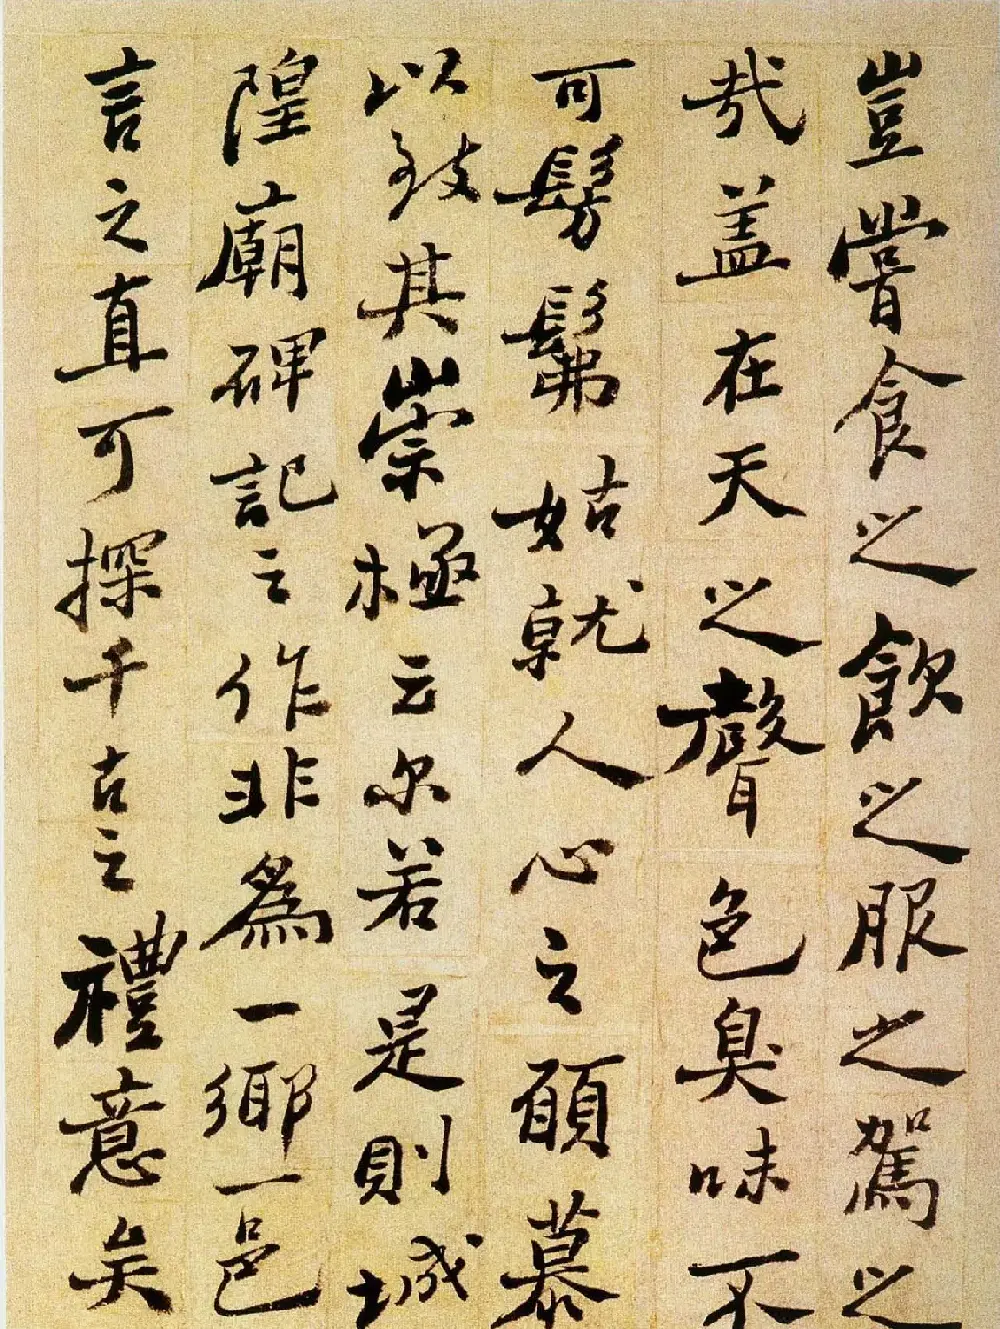 豈嘗食之飲之服之駕之
哉盖在天之聲色臭味不
可髣髴姑就人心之願慕
以致其崇極云尔若是則城
隍廟碑記之作非為一鄉一邑
言之直可探千古之禮意矣